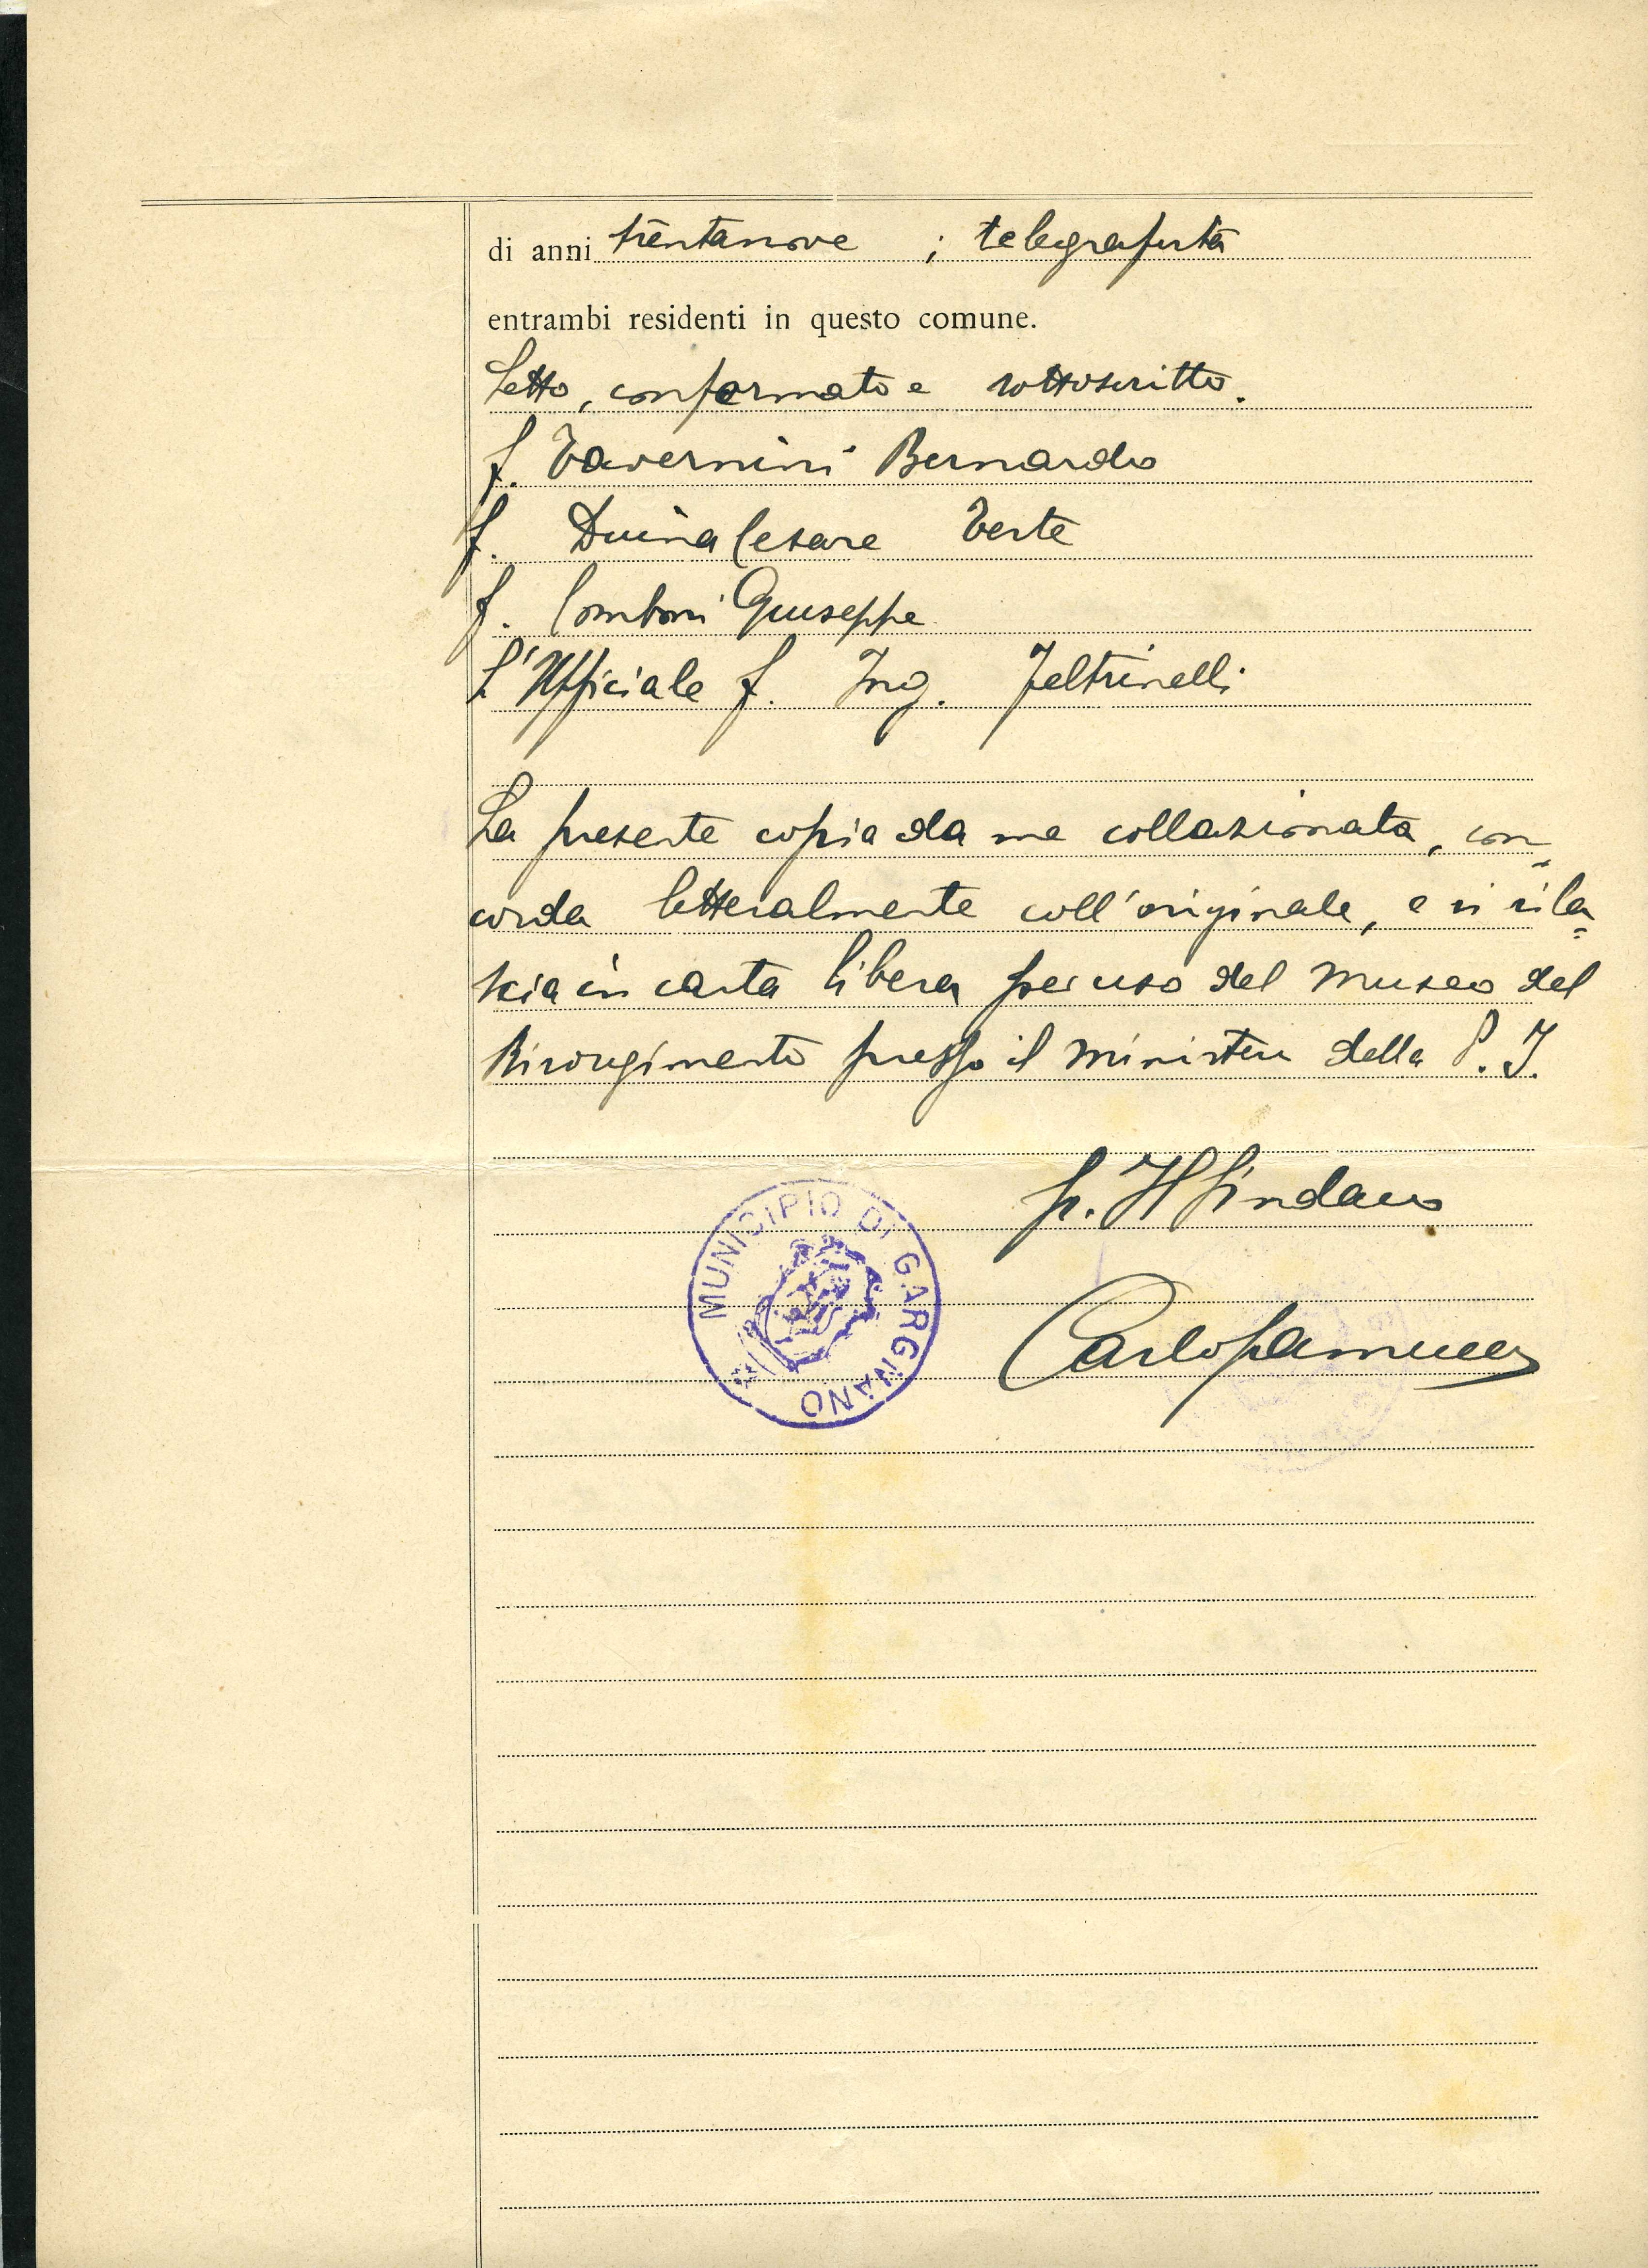 di anni trentanove ; telegrafista
entrambi residenti in questo comune.
Letto, confermato e sottoscritto.
f. Tavernini Bernardo
f. Duina Cesare Teste
f. Comboni Giuseppe
L'Ufficiale f. Ing. Feltrinelli
La presente copia da me collazionata, con=
corda letteralmente coll'originale, e si rila=
scia in carta libera per uso del Museo del
Risorgimento presso il Ministero della P. I.
p. Il Sindaco
MUNICIPIO DI GARGNANO
Carlo